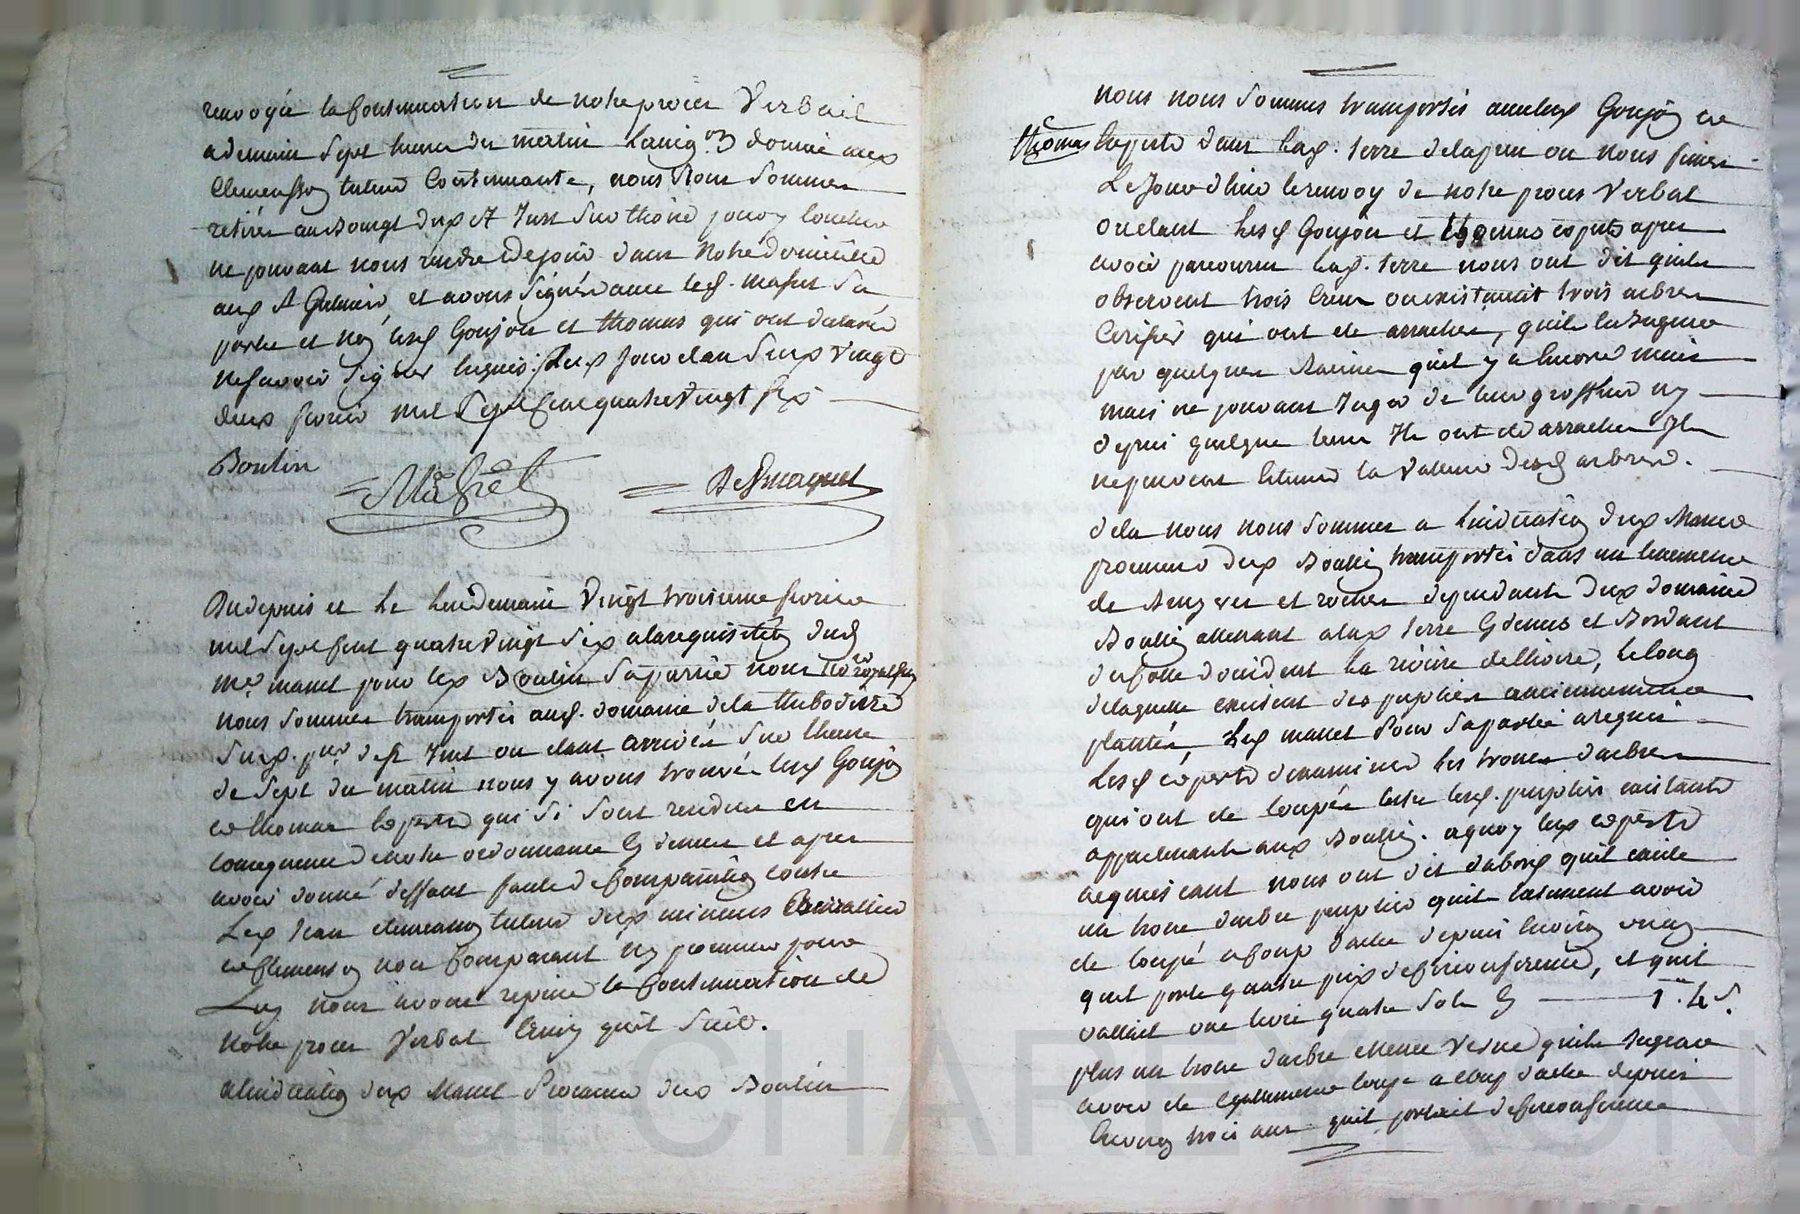 renvoyée la Continuation de notre procès Verbail
a demain sept heures du matin Lassig.on donnée aux
Clemenson tuteur Continuante, nous nous sommes
retirés au Bourgt dud St Just sur thoire pour y coucher
ne pouvant nous rendre de jour dans notre domicille
aud St Germain, et avons signés avec led. masset sa
partie et non lesd Goujon et thomas qui ont déclarés
ne savoir signer lesd jour et an sud vingt
deux fevrier mil sept cent quatre vingt six
Boulin Masset
Dudepuis et le lendemain vingt troisieme fevrier
mil sept cent quatre vingt six a la requisition dud
me. masset pour led Boulin sa partie nous no.re royal
nous sommes transportés aud. domaine de la
sud. p.sse de St Just ou etant arrivés sur lheure
de sept du matin nous y avons trouvés lesd Goujon
et thomas experts qui si sont rendus en
consequence de notre ordonnance Cy dessus et apres
avoir donné deffaut faute de Comparution contre
Led Jean Clemenson tuteur desd mineurs
et Clemenson non Comparant ny personne pour
Luy nous avons reprise la Continuation de
notre proces Verbal Ainsy quil suit.
a lindication dud Masset Procureur dud Boulin
nous nous sommes transportés avec lesd Goujon et
thomas Experts dans lad. terre delapra ou nous finimes
Le Jour d'hier le renvoy de notre proces Verbal
ou etant Lesd Goujon et thomas experts apres
avoir parcouru lad. terre nous ont dit quils
observent trois creux ou existaient trois arbres
Cerisier qui ont ete arrachés, quils le Jugent
par quelques racines quil y a Encore mais
mais ne pouvant Juger de leur grosseur ny
depuis quelque tems Ils ont ete arrachés Ils
ne peuvent Estimer la Valleur desd arbres.
dela nous nous sommes a lindication dud Masset
procureur dud Boulin transportés dans un tenement
de et rocher dependants dud domaine
Boulin attenant a lad terre Cy dessus et Bordant
du cotte doccident la riviere de thoire, le long
de laquelle existent des pupliers anciennement
plantés, Led masset Pour sa partie a requis
Lesd experts dexaminer les troncs darbres
qui ont ete coupés entre lesd. pupliers existants
appartenants aud Boulin. a quoy lesd experts
acquiescant nous ont dit dabord quil existe
un tronc darbre puplier quils estiment avoir
ete coupé a coup dache depuis environ
quil porte quatre pied de circonference, et quil
vallait une livre quatre sols Cy 1.# 4 s.
plus un tronc darbre essence Verne quils Jugent
avoir ete Egallement coupé a coup dache depuis
Environ trois ans quil portait de circonference
CHAREYRON